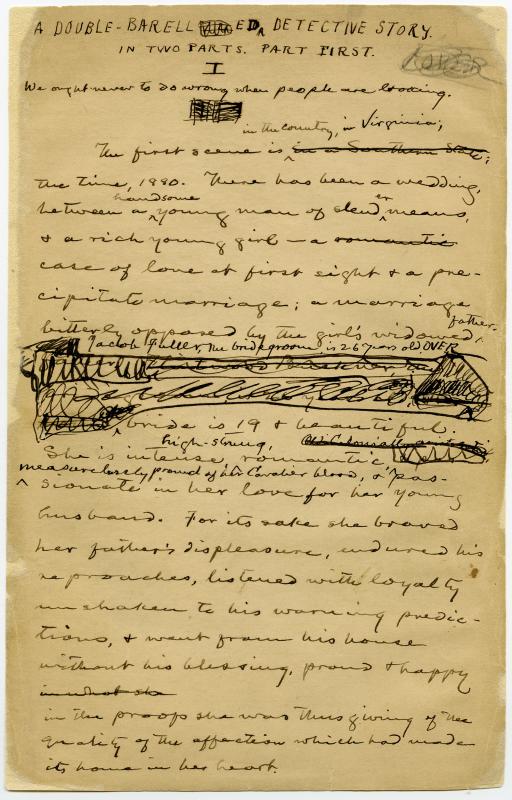 A DOUBLE-BARELLED DETECTIVE STORY.
IN TWO PARTS. PART FIRST.
I
We ought never to do wrong when people are looking.
in the country, in Virginia;
The first scene is in a Southern State;
the time, 1880. There has been a wedding,
handsome
between a young man of slender means,
& a rich young girl — a romantic
case of love at first sight & a pre-
cipitate marriage; a marriage
bitterly opposed by the girl's widowed father.
Jacob Fuller, the bridegroom is 26 years old OVER
bride is 19 & beautiful.
high-strung,
She is intense, romantic
measurelessly proud of her Cavalier blood, & pas-
sionate in her love for her young
husband. For its sake she braved
her father's displeasure, endured his
reproaches, listened with loyalty
unshaken to his warning predic-
tions, & went from his house
without his blessing, proud & happy
in what she
in the proofs she was thus giving of the
quality of the affection which had made
its home in her heart.